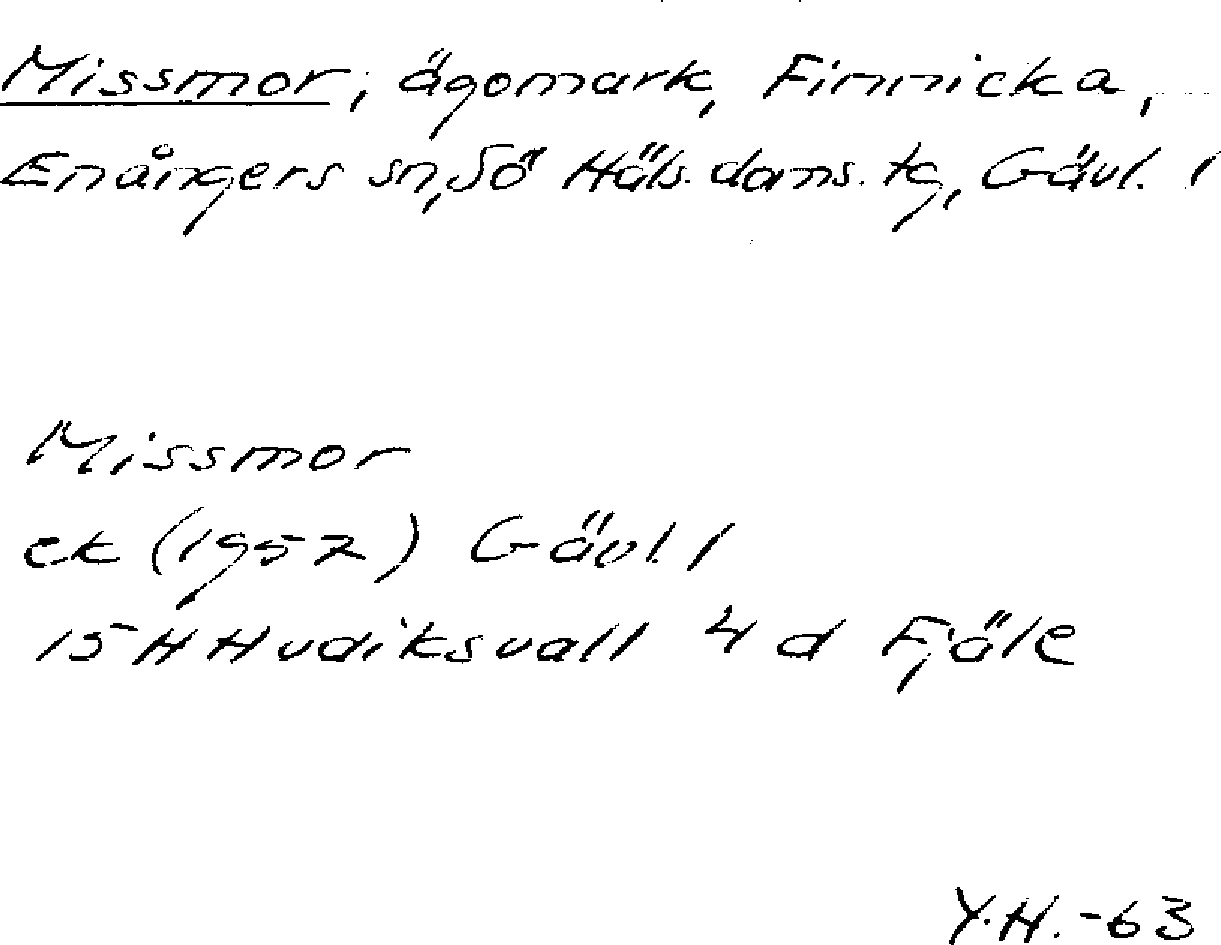 Missmor, ägomark, Finnicka,
Enångers sn, Sö Häls. doms. tg, Gävl. l
Missmor
ek (1957) Gävl. l
15 H Hudiksvall 4 d Fjäle
Y.H. -63